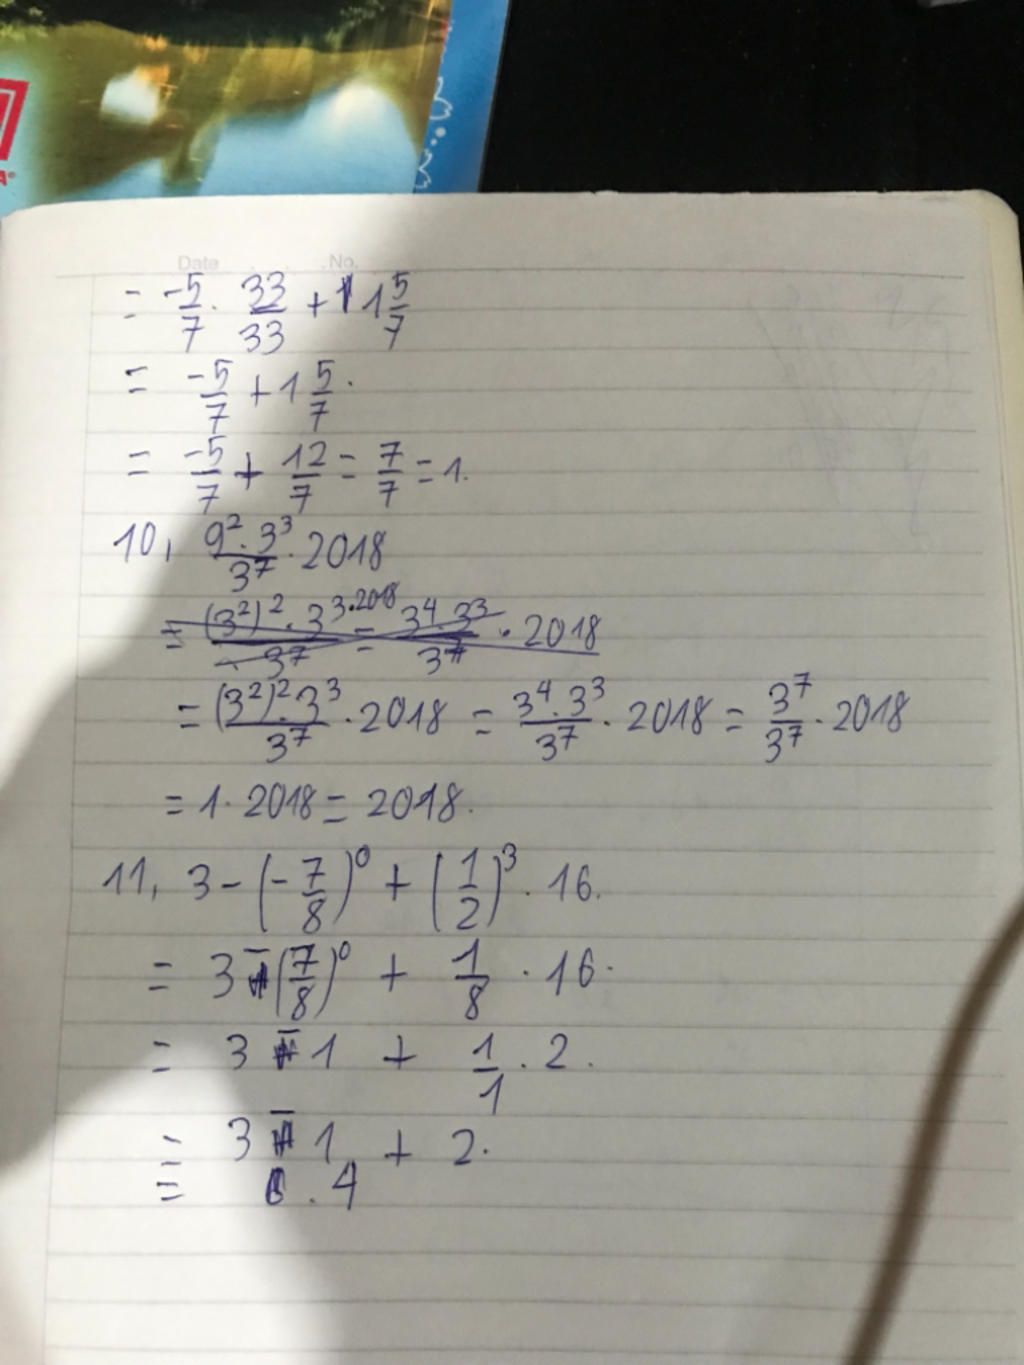 Date No.
= -5/7 . 33/33 + 1 5/7
= -5/7 + 1 5/7 .
= -5/7 + 12/7 = 7/7 = 1.
10, 9² . 3³/3⁷ . 2018
= (3²)² . 3³·²⁰¹⁸/3⁷ = 3⁴ . 3³/3⁷ . 2018
= (3²)² . 3³/3⁷ . 2018 = 3⁴ . 3³/3⁷ . 2018 = 3⁷/3⁷ . 2018
= 1 . 2018 = 2018.
11, 3 - (-7/8)⁰ + (1/2)³ . 16.
= 3 - (7/8)⁰ + 1/8 . 16.
= 3 - 1 + 1/1 . 2.
= 3 - 1 + 2.
= . 4